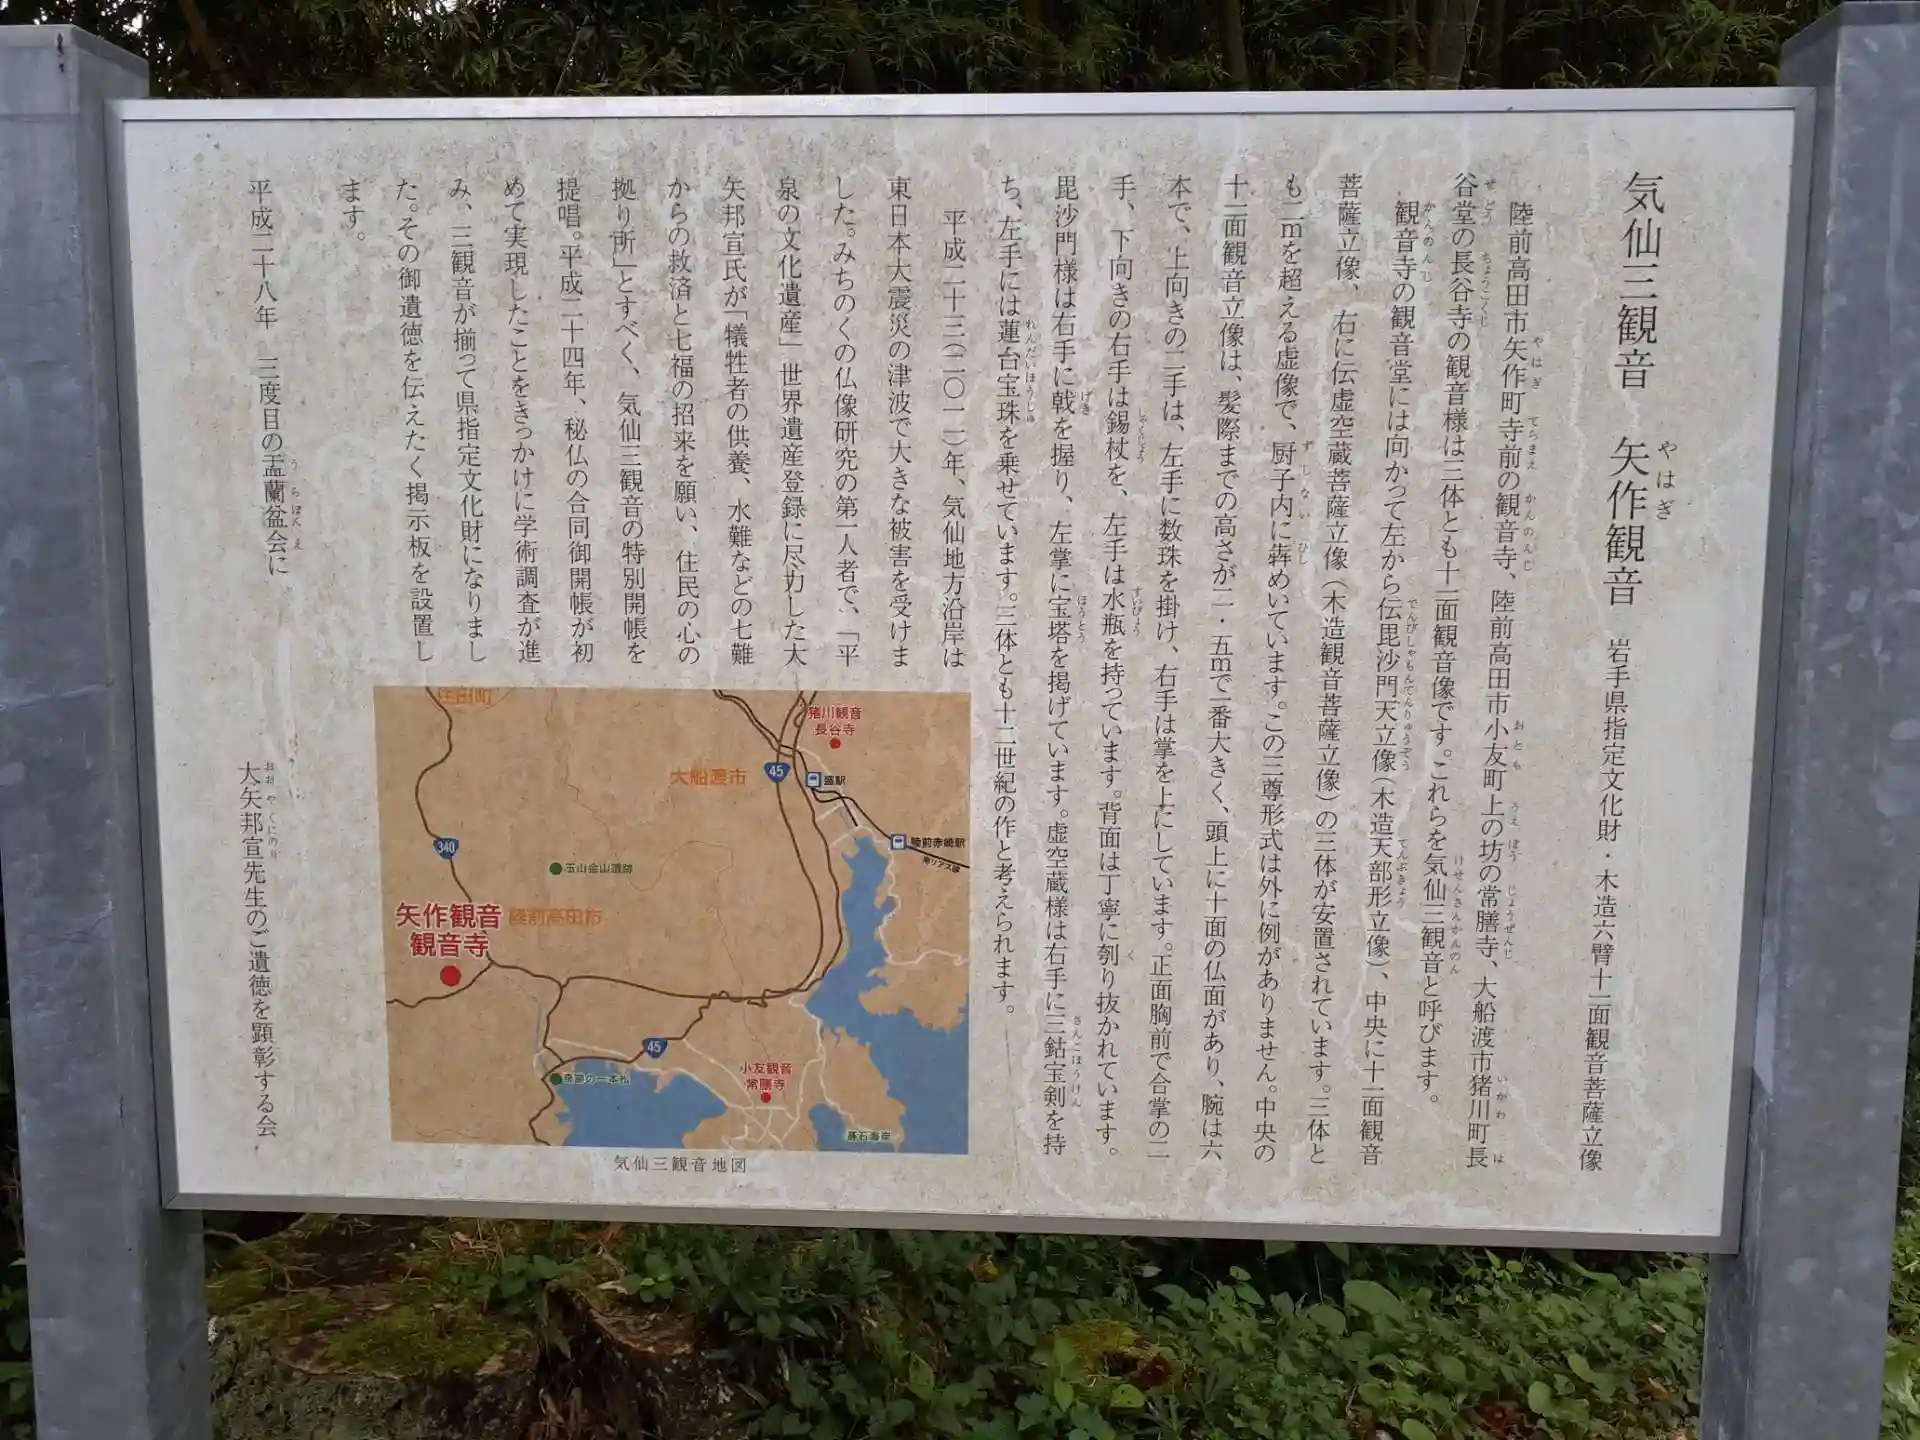 気仙三観音　矢作観音　岩手県指定文化財・木造六臂十一面観音菩薩立像
やはぎ
陸前高田市矢作町寺前の観音寺、陸前高田市小友町上の坊の常膳寺、大船渡市猪川町長
やはぎ　てらまえ　かんのんじ　おとも　うえ　ぼう　じょうぜんじ　いかわ　は
谷堂の長谷寺の観音様は三体とも十一面観音像です。これらを気仙三観音と呼びます。
せどう　ちょうこくじ　けせんさんかんのん
観音寺の観音堂には向かって左から伝毘沙門天立像（木造天部形立像）、中央に十一面観音
かんのんじ　でんびしゃもんてんりゅうぞう　てんぶぎょう
菩薩立像、右に伝虚空蔵菩薩立像（木造観音菩薩立像）の三体が安置されています。三体と
も二ｍを超える虚像で、厨子内に犇めいています。この三尊形式は外に例がありません。中央の
ずしない　ひし
十一面観音立像は、髪際までの高さが二・五ｍで一番大きく、頭上に十面の仏面があり、腕は六
本で、上向きの二手は、左手に数珠を掛け、右手は掌を上にしています。正面胸前で合掌の二
手、下向きの右手は錫杖を、左手は水瓶を持っています。背面は丁寧に刳り抜かれています。
しゃくじょう　すいびょう　く
毘沙門様は右手に戟を握り、左掌に宝塔を掲げています。虚空蔵様は右手に三鈷宝剣を持
げき　ほうとう　さんこほうけん
ち、左手には蓮台宝珠を乗せています。三体とも十二世紀の作と考えられます。
れんだいほうじゅ
平成二十三（二〇一一）年、気仙地方沿岸は
東日本大震災の津波で大きな被害を受けま
した。みちのくの仏像研究の第一人者で、「平
泉の文化遺産」世界遺産登録に尽力した大
矢邦宣氏が「犠牲者の供養、水難などの七難
からの救済と七福の招来を願い、住民の心の
拠り所」とすべく、気仙三観音の特別開帳を
提唱。平成二十四年、秘仏の合同御開帳が初
めて実現したことをきっかけに学術調査が進
み、三観音が揃って県指定文化財になりまし
た。その御遺徳を伝えたく掲示板を設置し
ます。
平成二十八年　三度目の盂蘭盆会に
うらぼんえ
大矢邦宣先生のご遺徳を顕彰する会
おおやくにのり
住田町
猪川観音
長谷寺
大船渡市
45
盛駅
陸前赤崎駅
南リアス線
340
玉山金山遺跡
矢作観音
観音寺
陸前高田市
45
奇跡の一本松
小友観音
常膳寺
碁石海岸
気仙三観音地図